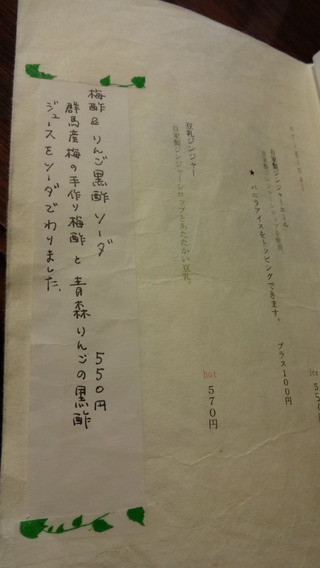 自家製ジンジャーエール
★ バニラアイスをトッピングできます。
プラス100円
豆乳ジンジャー
自家製ジンジャーシロップとあたたかい豆乳。
hot 570円
梅酢&りんご黒酢ソーダ 550円
群馬産梅の手作り梅酢と青森りんごの黒酢
ジュースをソーダでわりました。